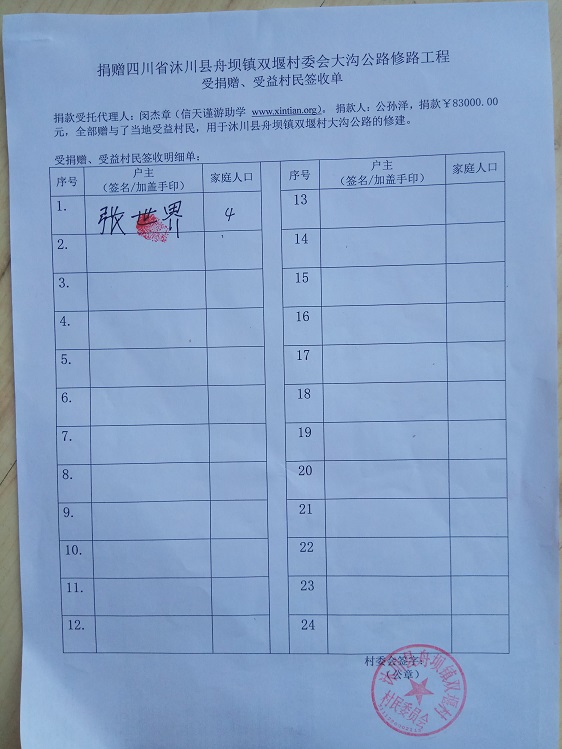 捐赠四川省沐川县舟坝镇双堰村委会大沟公路修路工程
受捐赠、受益村民签收单
捐款受托代理人：闵杰章（信天谨游助学 www.xintian.org）。捐款人：公孙泽，捐款￥83000.00
元，全部赠与了当地受益村民，用于沐川县舟坝镇双堰村大沟公路的修建。
受捐赠、受益村民签收明细单：
序号 户主 家庭人口
（签名/加盖手印）
1. 张世界 4
2.
3.
4.
5.
6.
7.
8.
9.
10.
11.
12.
序号 户主 家庭人口
（签名/加盖手印）
13
14
15
16
17
18
19
20
21
22
23
24
村委会签字：
（公章）
沐川县舟坝镇双堰村
村民委员会